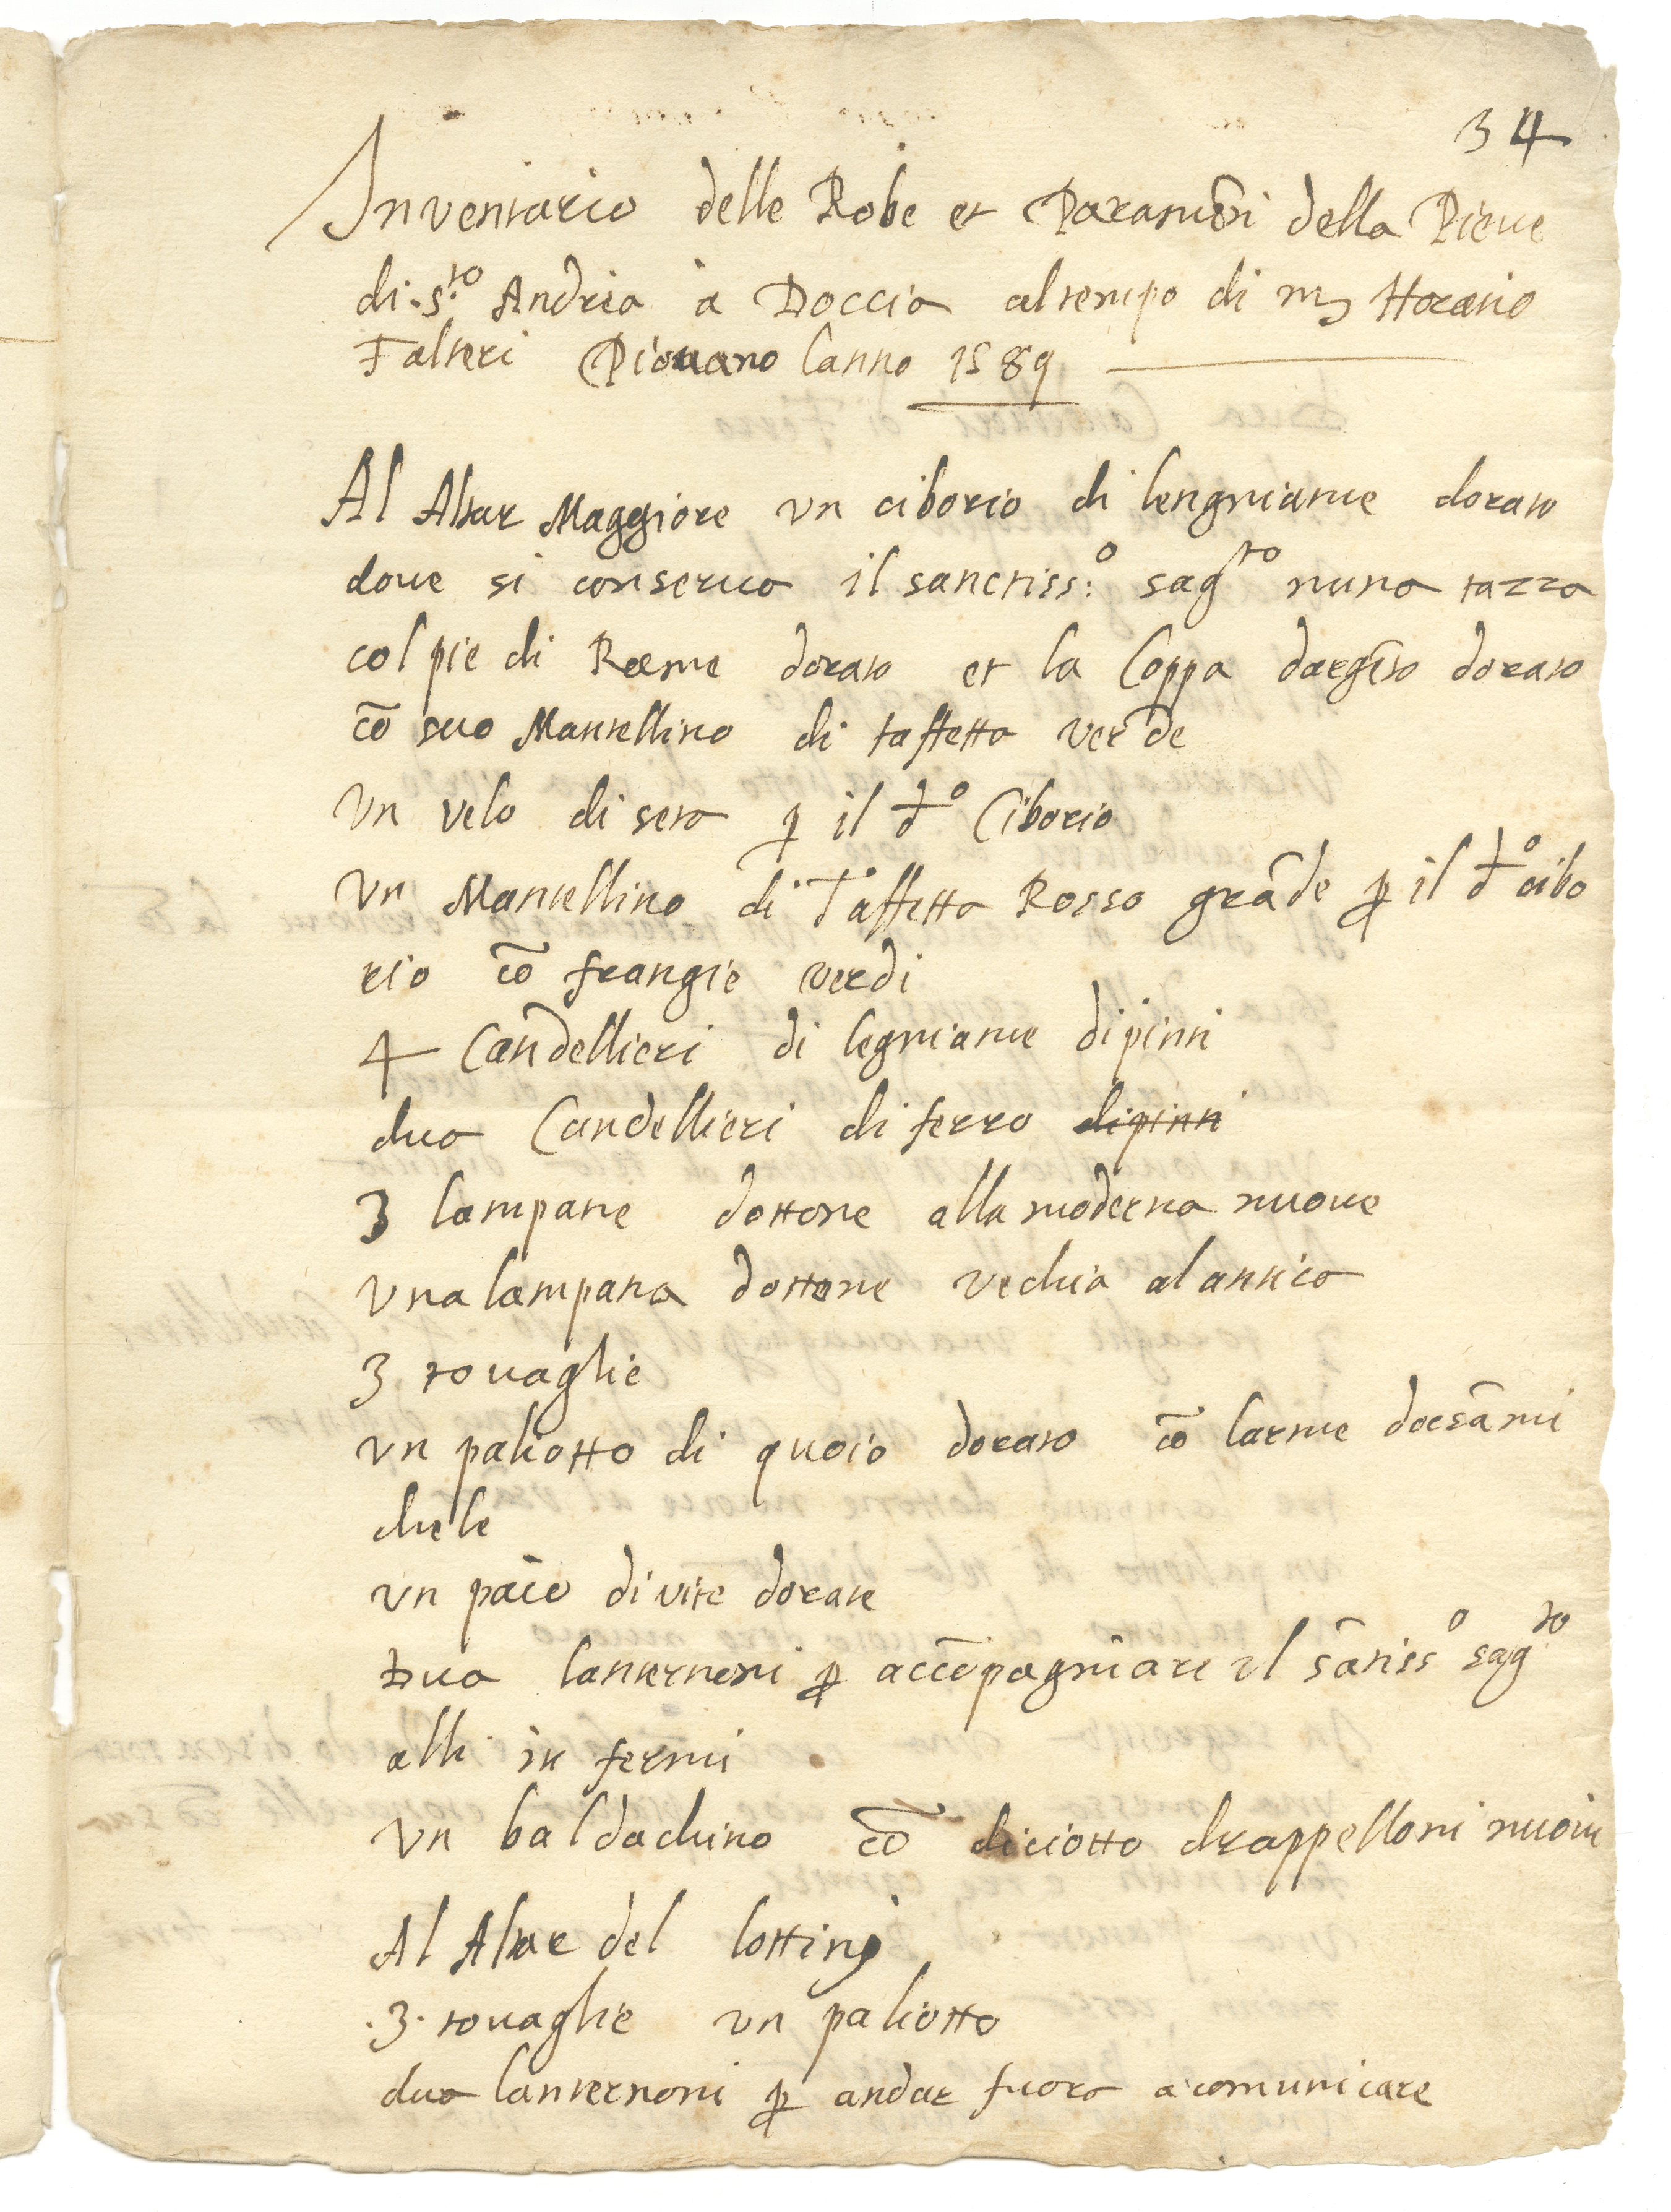 34
Inventario delle Robe et Param̃ti della Pieve
di. S.to Andrea à Doccia altempo di m Horatio
Falteri Piouano lanno 1589
Al Altar Maggiore un ciborio di lengniame dorato
doue si conserua il sanctiss:o sag.to nuna tazza
col pie di Rame dorato et la Coppa dargẽto dorato
cõ suo Mantellino di taffetta verde
Vn velo di seta p il do Ciborio
Vn Mantellino di Taffetta Rosso grãde p il do cibo
rio cõ frangie verdi
4 Candellieri di legniame dipinti
duo Candellieri di ferro dipinti
3 lampane dottone alla moderna nuoue
Vna lampana dottone vechia al antica
3 touaglie
vn paliotto di quoio dorato cõ larme dorsãmi
chele
vn paio di vite dorate
Duo lanternoni p accõpagniare il sãtiss.o sag.to
alli in fermi
Vn baldachino cõ diciotto drappelloni nuoui
Al Altar del lottini
.3. touaglie un paliotto
duo lanternoni p andar fuora a comunicare